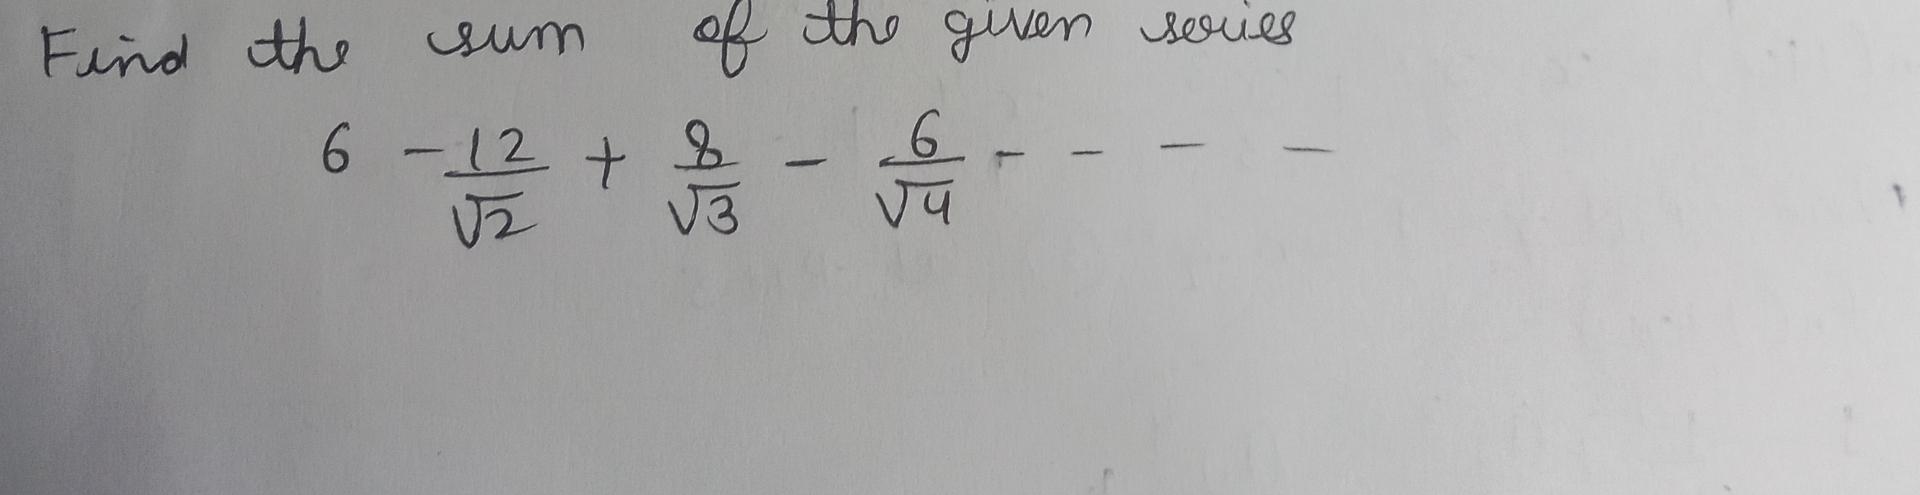 Find the sum of the given series
6 - 12/√2 + 8/√3 - 6/√4 - - - -